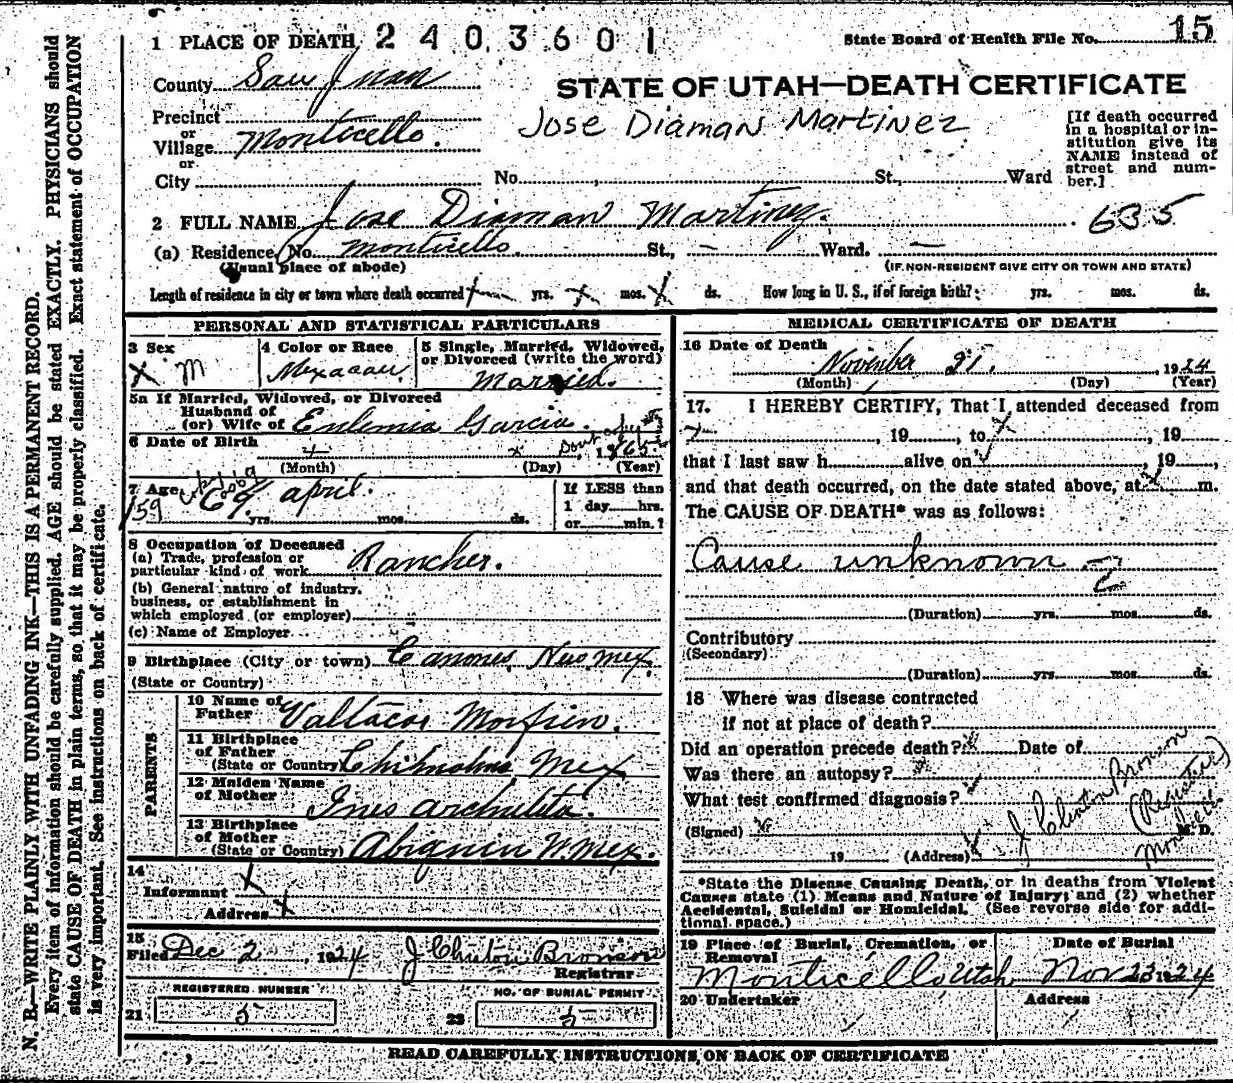 1 PLACE OF DEATH 2403601
State Board of Health File No. 15
County San Juan
STATE OF UTAH—DEATH CERTIFICATE
Precinct
or
Village Monticello.
or
City No. St., Ward
Jose Diaman Martinez
[If death occurred
in a hospital or in-
stitution give its
NAME instead of
street and num-
ber.]
2 FULL NAME Jose Diaman Martinez. 635
(a) Residence, No. Monticello. St., — Ward. —
(Usual place of abode)
(IF NON-RESIDENT GIVE CITY OR TOWN AND STATE)
Length of residence in city or town where death occurred yrs. mos. ds. How long in U. S., if of foreign birth? yrs. mos. ds.
PERSONAL AND STATISTICAL PARTICULARS
3 Sex
x M
4 Color or Race
Mexacan
5 Single, Married, Widowed,
or Divorced (write the word)
Married.
5a If Married, Widowed, or Divorced
Husband of
(or) Wife of Eulemia Garcia
6 Date of Birth 1865
(Month) (Day) (Year)
7 Age 69 april.
159 yrs. mos. ds.
If LESS than
1 day hrs.
or min.?
8 Occupation of Deceased
(a) Trade, profession or
particular kind of work Rancher.
(b) General nature of industry,
business, or establishment in
which employed (or employer)
(c) Name of Employer
9 Birthplace (City or town) Canones, New Mex.
(State or Country)
PARENTS
10 Name of
Father
11 Birthplace
of Father
(State or Country) Mex
12 Maiden Name
of Mother Ines Archuleta.
13 Birthplace
of Mother
(State or Country) Abiquiu N. Mex.
14
Informant x
Address x
15
Filed Dec 2, 1924 J Clinton Bronson
Registrar
REGISTERED NUMBER
21 5
NO. OF BURIAL PERMIT
22 5
MEDICAL CERTIFICATE OF DEATH
16 Date of Death
November 21, 1924
(Month) (Day) (Year)
17. I HEREBY CERTIFY, That I attended deceased from
, 19 , to , 19
that I last saw h alive on , 19 ,
and that death occurred, on the date stated above, at m.
The CAUSE OF DEATH* was as follows:
Cause unknown
(Duration) yrs. mos. ds.
Contributory
(Secondary)
(Duration) yrs. mos. ds.
18 Where was disease contracted
if not at place of death?
Did an operation precede death? Date of
Was there an autopsy?
What test confirmed diagnosis?
(Signed) M. D.
19 (Address)
J Clinton Bronson
(Registrar)
*State the Disease Causing Death, or in deaths from Violent
Causes state (1) Means and Nature of Injury; and (2) whether
Accidental, Suicidal or Homicidal. (See reverse side for addi-
tional space.)
19 Place of Burial, Cremation, or
Removal
Monticello Utah
Date of Burial
Nov 23 1924
20 Undertaker
Address
READ CAREFULLY INSTRUCTIONS ON BACK OF CERTIFICATE
N. B.—WRITE PLAINLY WITH UNFADING INK—THIS IS A PERMANENT RECORD.
Every item of information should be carefully supplied. AGE should be stated EXACTLY. PHYSICIANS should
state CAUSE OF DEATH in plain terms, so that it may be properly classified. Exact statement of OCCUPATION
is very important. See instructions on back of certificate.